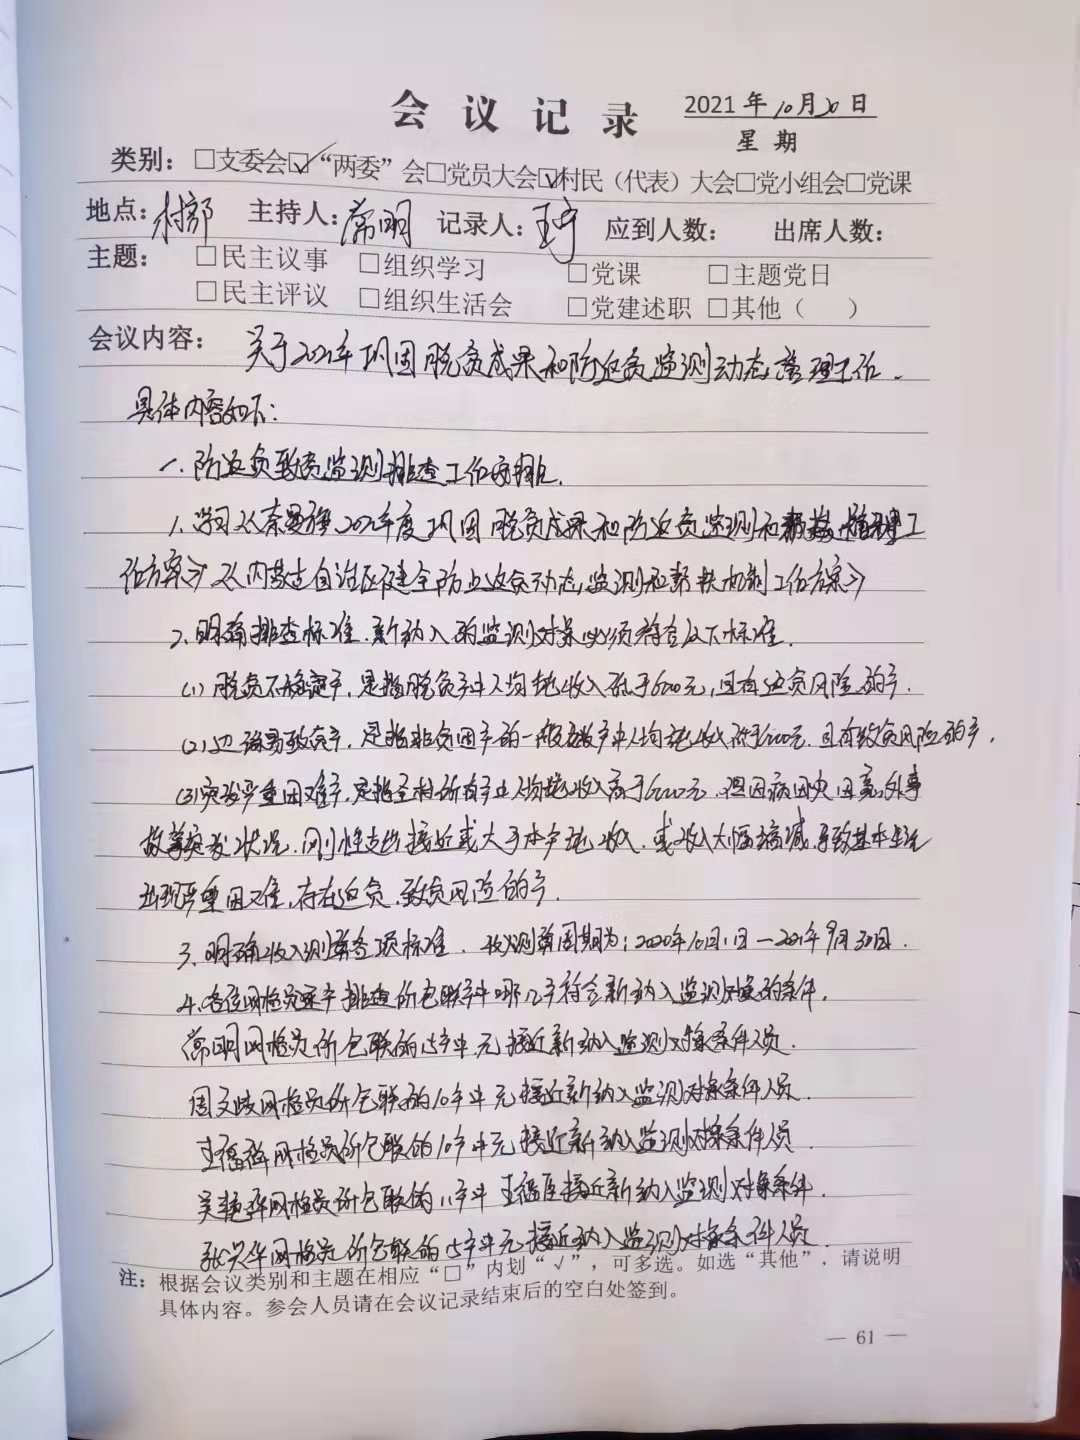 会议记录 2021年10月20日
星期
类别：□支委会☑“两委”会□党员大会☑村民（代表）大会□党小组会□党课
地点：村部 主持人：常明 记录人：王宇 应到人数： 出席人数：
主题： □民主议事 □组织学习 □党课 □主题党日
□民主评议 □组织生活会 □党建述职 □其他（ ）
会议内容： 关于2021年巩固脱贫成果和防返贫监测动态管理工作.
具体内容如下：
一.防返贫致贫监测排查工作安排.
1.学习《奈曼旗2021年度巩固脱贫成果和防返贫监测和帮扶管理工
作方案》《内蒙古自治区健全防止返贫动态监测和帮扶机制工作方案》
2.明确排查标准.新纳入的监测对象必须符合以下标准.
(1)脱贫不稳定户,是指脱贫户中人均纯收入低于6000元,且有返贫风险的户.
(2)边缘易致贫户,是指非贫困户的一般农户中人均纯收入低于6000元.且有致贫风险的户.
(3)突发严重困难户.是指全村所有户上人均纯收入高于6000元.但因病因灾因意外事
故等突发状况.刚性支出接近或大于本户纯收入.或收入大幅缩减.导致基本生活
出现严重困难,存在返贫.致贫风险的户.
3.明确收入测算查项标准.收入测算周期为：2020年10月1日—2021年9月30日.
4.各位网格员逐户排查所包联户中哪几户符合新纳入监测对象的条件.
常明网格员所包联的15户中无接近新纳入监测对象条件人员.
周文 网格员所包联的10户中无接近新纳入监测对象条件人员.
王福 网格员所包联的10户中无接近新纳入监测对象条件人员
吴艳华网格员所包联的11户中王福臣接近新纳入监测对象条件.
张兴华网格员所包联的15户中无接近纳入监测对象条件人员.
注：根据会议类别和主题在相应“□”内划“√”，可多选。如选“其他”，请说明
具体内容。参会人员请在会议记录结束后的空白处签到。
— 61 —